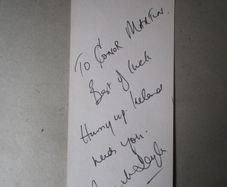 To Conor Martin.
Best of luck
Hurry up Ireland
needs you.